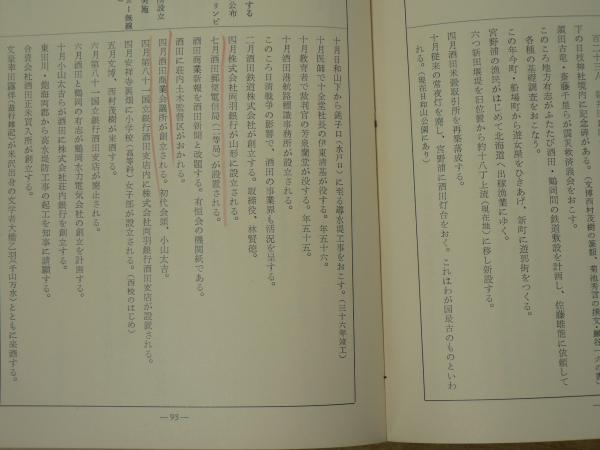 下の日枝神社境内に記念碑がある。（文博西村茂樹の篆額、菊池秀言の撰文・巌谷一六の書）
須田古竜・斎藤千里らが震災救済義会をおこす。
このころ地方有志がふたたび酒田・鶴岡間の鉄道敷設を計画し、佐藤雄能に依頼して
各種の基礎調査をおこなう。
この年今町・船場町から遊女屋をひきあげ、新町に遊郭街をつくる。
宮野浦の漁民がはじめて北海道へ出稼漁業にゆく。
六つ新田堰堤を旧位置から約十八丁上流（現在地）に移し新設する。
四月酒田米穀取引所を再築落成する。
十月従来の常夜灯を廃し、宮野浦に酒田灯台をおく。これはわが国最古のものといわ
れる。（現在日和山公園にあり）
十月日和山下から銚子口（水戸口）に至る導水堤工事をおこす。（三十六年竣工）
十月医師で十全堂社長の伊東清基が没する。年五十六。
十月教育者で裁判官の芳泉蘭堂が没する。年五十五。
十月酒田港航路標識事務所が設立される。
このころ日清戦争の影響で、酒田の事業界も活況を呈する。
二月酒田鉄道株式会社が創立する。取締役、林賢徳。
四月株式会社両羽銀行が山形に設立される。
七月酒田郵便電信局（二等局）が設置される。
酒田に荘内土木監督区がおかれる。
酒田商業新報を酒田新聞と改題する。有恒会の機関紙である。
四月酒田商業会議所が創立される。初代会頭、小山太吉。
四月第八十一国立銀行酒田支店内に株式会社両羽銀行酒田支店が設置される。
四月安祥寺裏畑に小学校（高等科）女子部が設立される。（西校のはじめ）
五月文博、西村茂樹が来酒する。
六月第八十一国立銀行酒田支店が廃止される。
六月酒田と鶴岡の有志が鶴岡水力電気会社の創立を計画する。
十月小山太吉らが酒田に株式会社荘内銀行を創立する。
東田川・飽海両郡から赤水堤防工事の起工を知事に請願する。
合資会社酒田正米買入所が創立する。
文豪幸田露伴（遊行雑記）が米沢出身の文学者大橋乙羽（千山万水）とともに来酒する。
―93―